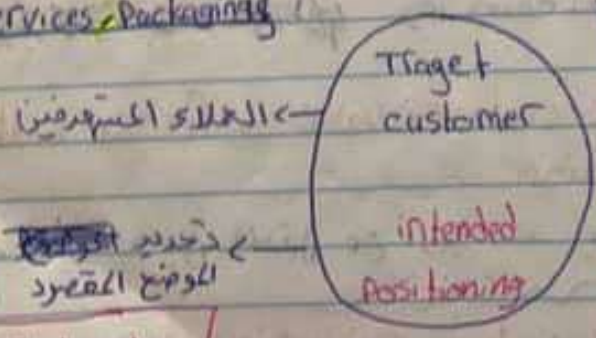 ervices, Packagingg
Traget
customer
العملاء المستهدفين
intended
positioning
تحديد
الموضع المقصود